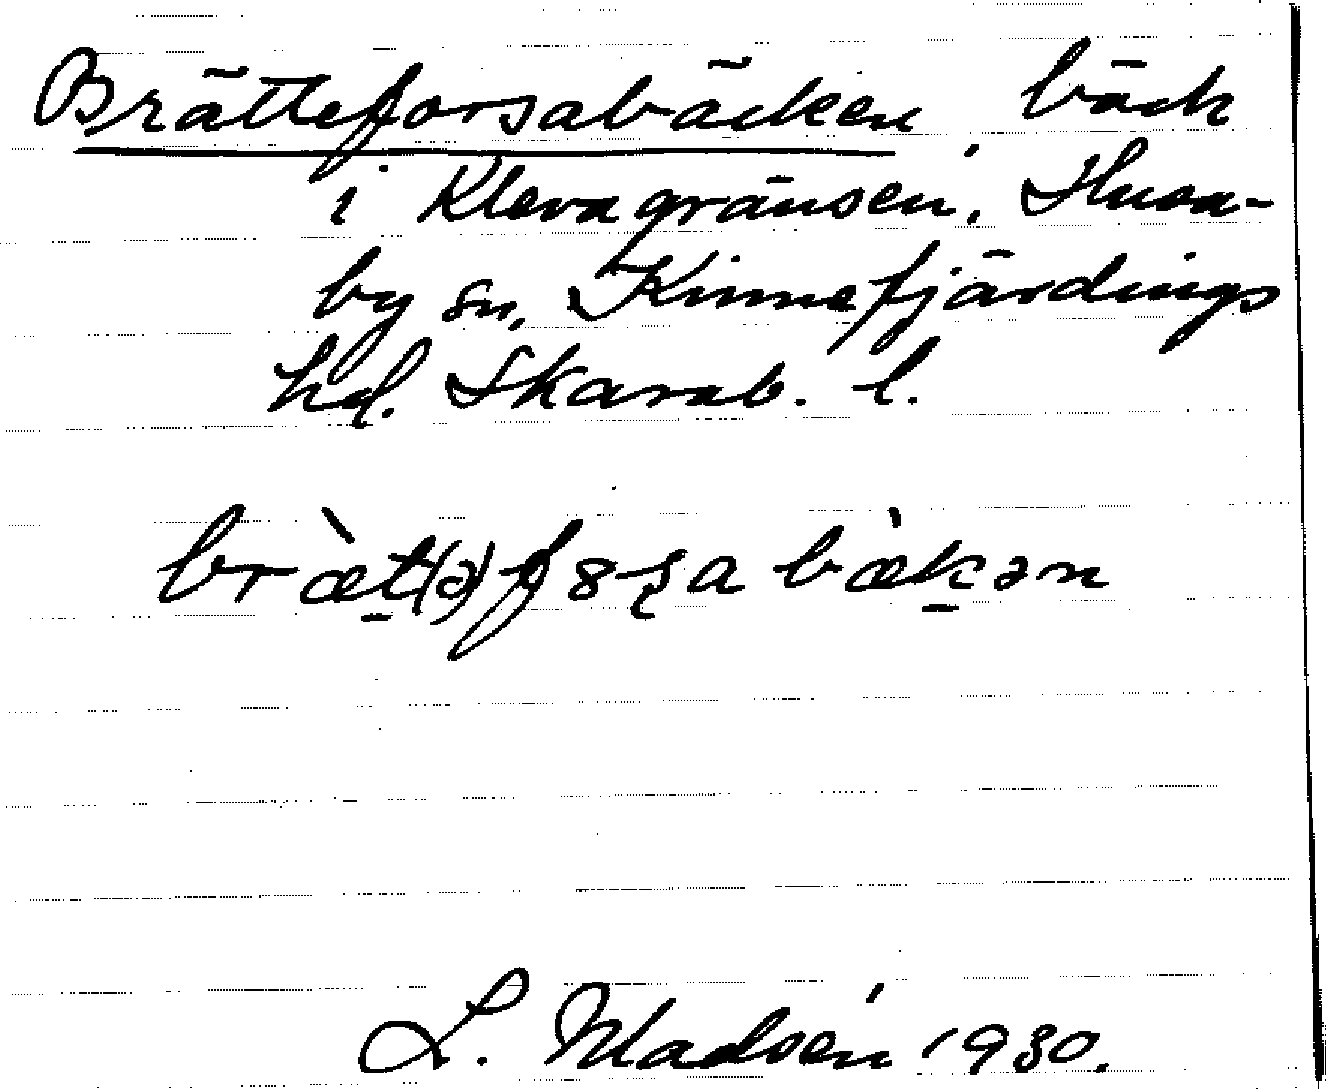 Brätteforsabäcken bäck
i Klevagränsen, Husa-
by sn, Kinnefjärdings
hd. Skarab. l.
bræ̀t(ə)f8ʂa bæ̀kən
L. Madsén 1930.